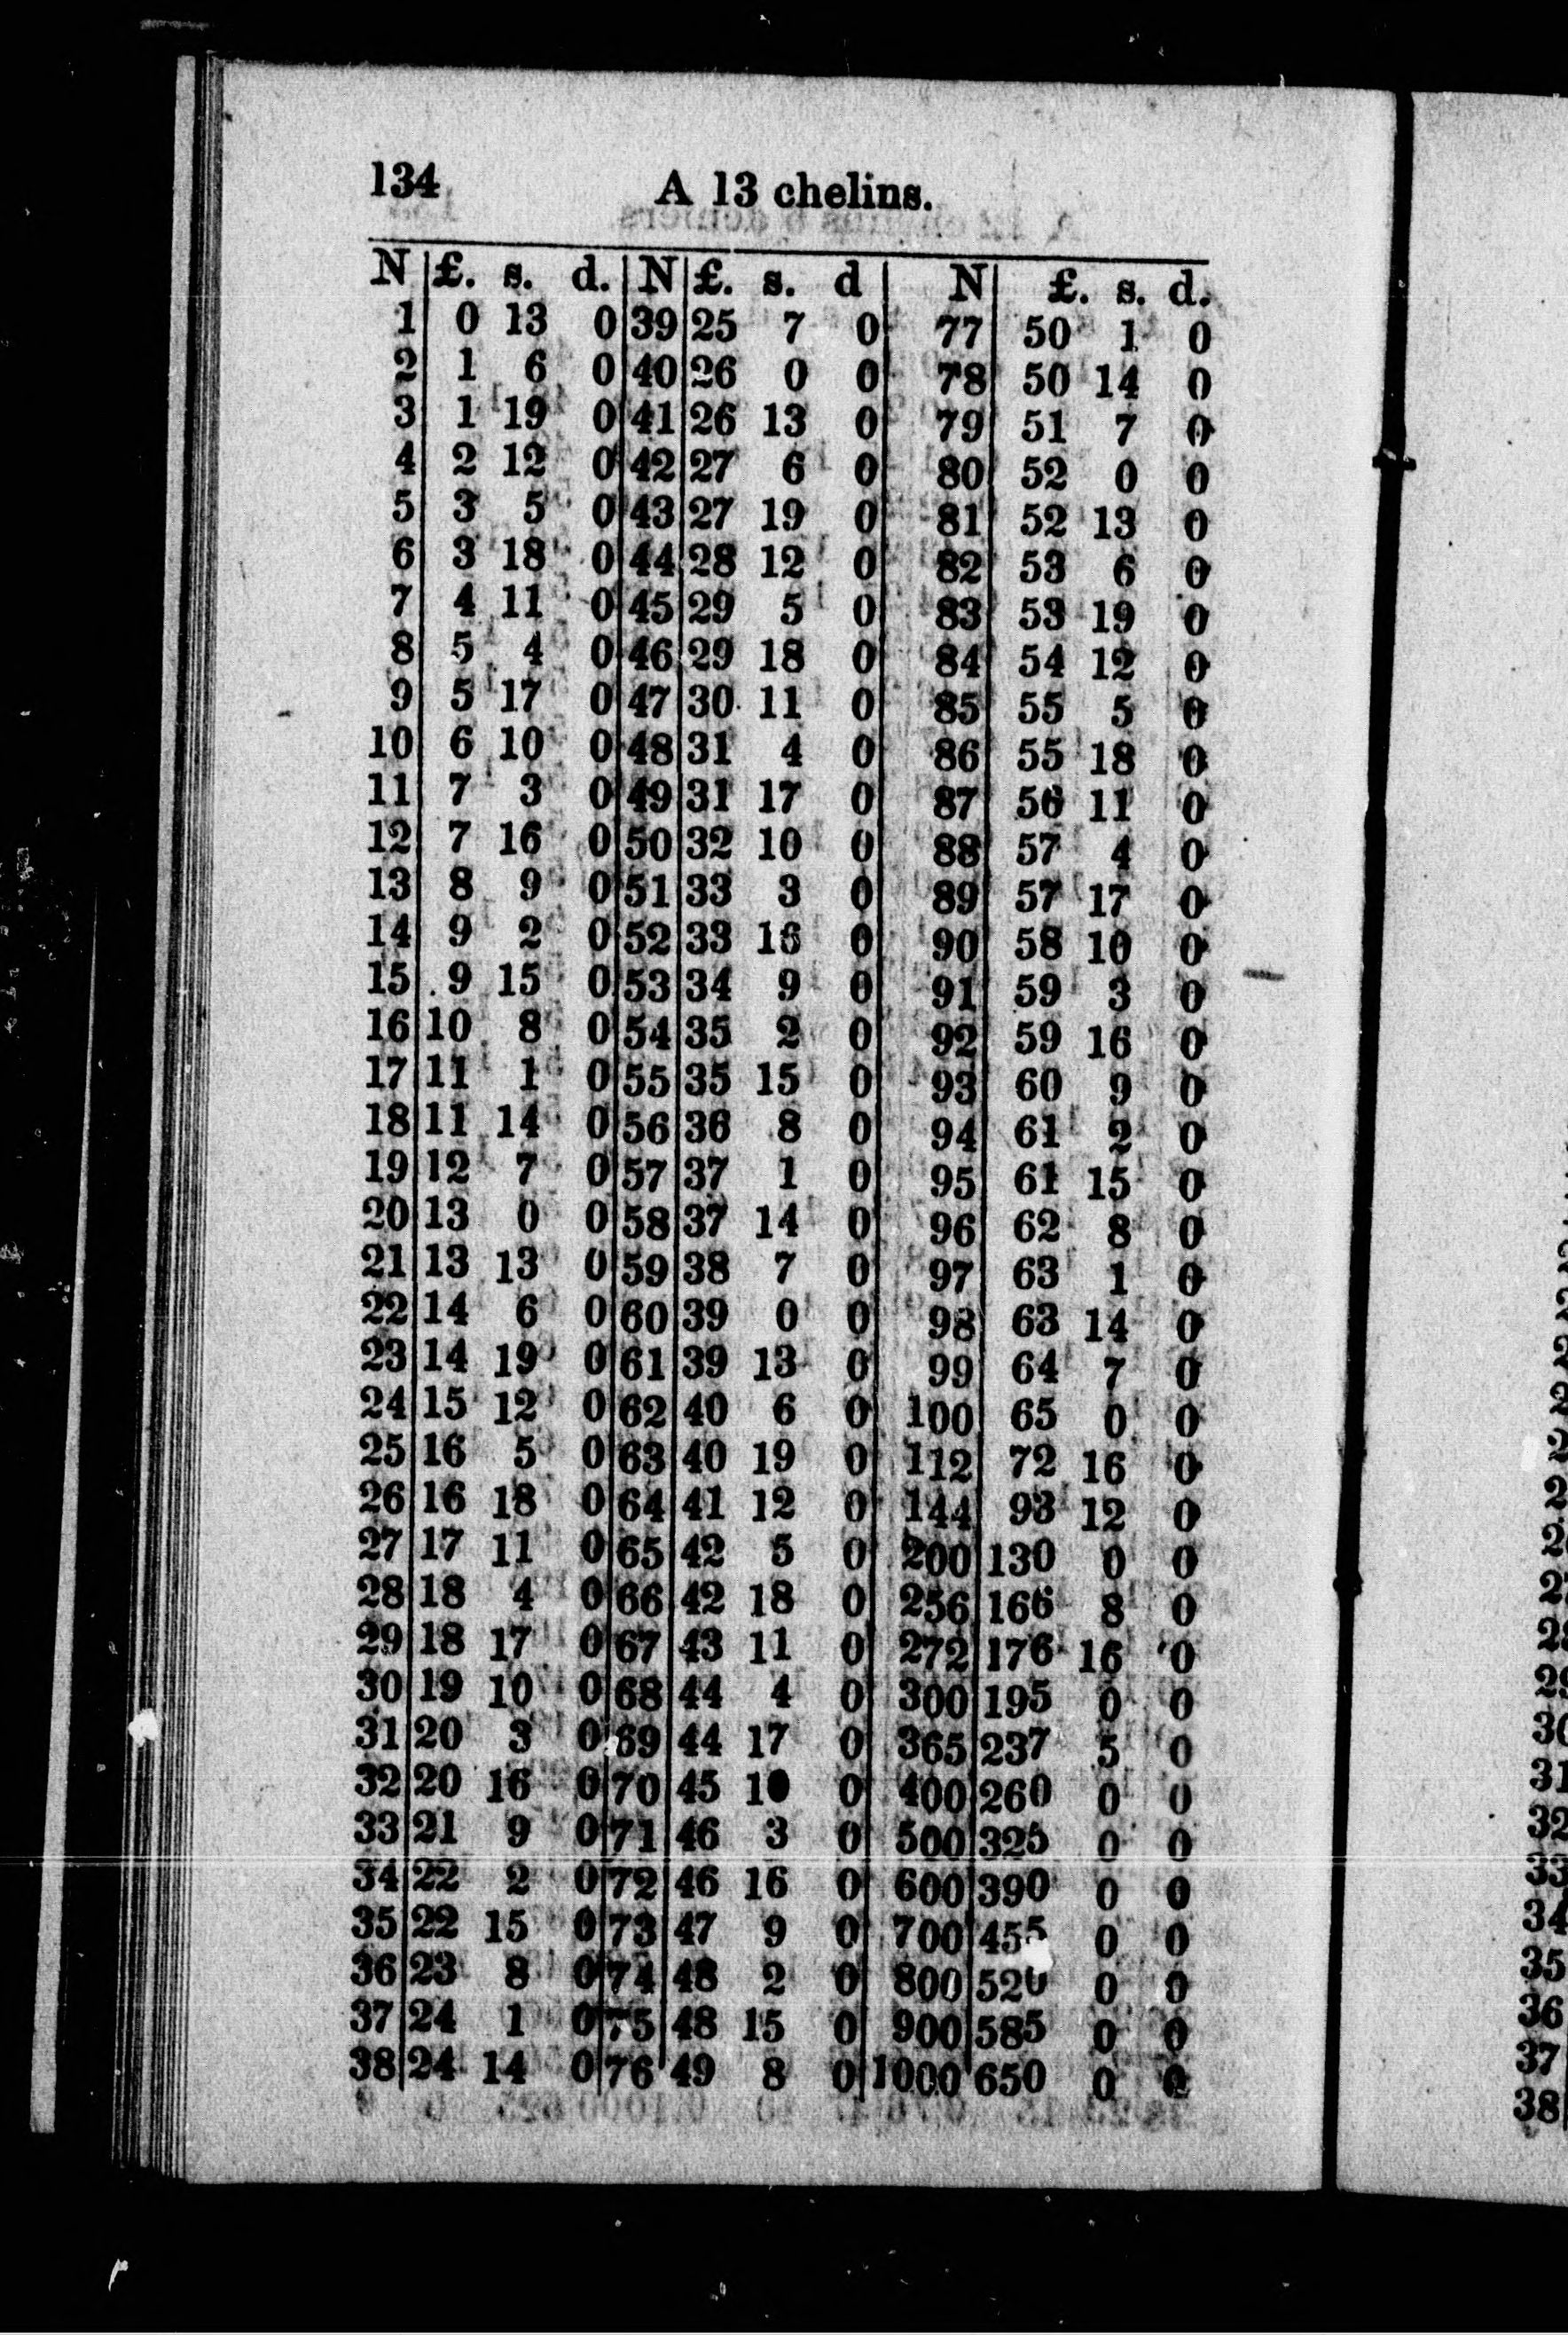 134 A 13 chelins.
N £. s. d. N £. s. d N £. s. d.
1 0 13 0 39 25 7 0 77 50 1 0
2 1 6 0 40 26 0 0 78 50 14 0
3 1 19 0 41 26 13 0 79 51 7 0
4 2 12 0 42 27 6 0 80 52 0 0
5 3 5 0 43 27 19 0 81 52 13 0
6 3 18 0 44 28 12 0 82 53 6 0
7 4 11 0 45 29 5 0 83 53 19 0
8 5 4 0 46 29 18 0 84 54 12 0
9 5 17 0 47 30 11 0 85 55 5 0
10 6 10 0 48 31 4 0 86 55 18 0
11 7 3 0 49 31 17 0 87 56 11 0
12 7 16 0 50 32 10 0 88 57 4 0
13 8 9 0 51 33 3 0 89 57 17 0
14 9 2 0 52 33 16 0 90 58 10 0
15 9 15 0 53 34 9 0 91 59 3 0
16 10 8 0 54 35 2 0 92 59 16 0
17 11 1 0 55 35 15 0 93 60 9 0
18 11 14 0 56 36 8 0 94 61 2 0
19 12 7 0 57 37 1 0 95 61 15 0
20 13 0 0 58 37 14 0 96 62 8 0
21 13 13 0 59 38 7 0 97 63 1 0
22 14 6 0 60 39 0 0 98 63 14 0
23 14 19 0 61 39 13 0 99 64 7 0
24 15 12 0 62 40 6 0 100 65 0 0
25 16 5 0 63 40 19 0 112 72 16 0
26 16 18 0 64 41 12 0 144 93 12 0
27 17 11 0 65 42 5 0 200 130 0 0
28 18 4 0 66 42 18 0 256 166 8 0
29 18 17 0 67 43 11 0 272 176 16 0
30 19 10 0 68 44 4 0 300 195 0 0
31 20 3 0 69 44 17 0 365 237 5 0
32 20 16 0 70 45 10 0 400 260 0 0
33 21 9 0 71 46 3 0 500 325 0 0
34 22 2 0 72 46 16 0 600 390 0 0
35 22 15 0 73 47 9 0 700 455 0 0
36 23 8 0 74 48 2 0 800 520 0 0
37 24 1 0 75 48 15 0 900 585 0 0
38 24 14 0 76 49 8 0 1000 650 0 0
31
32
33
34
35
36
37
38